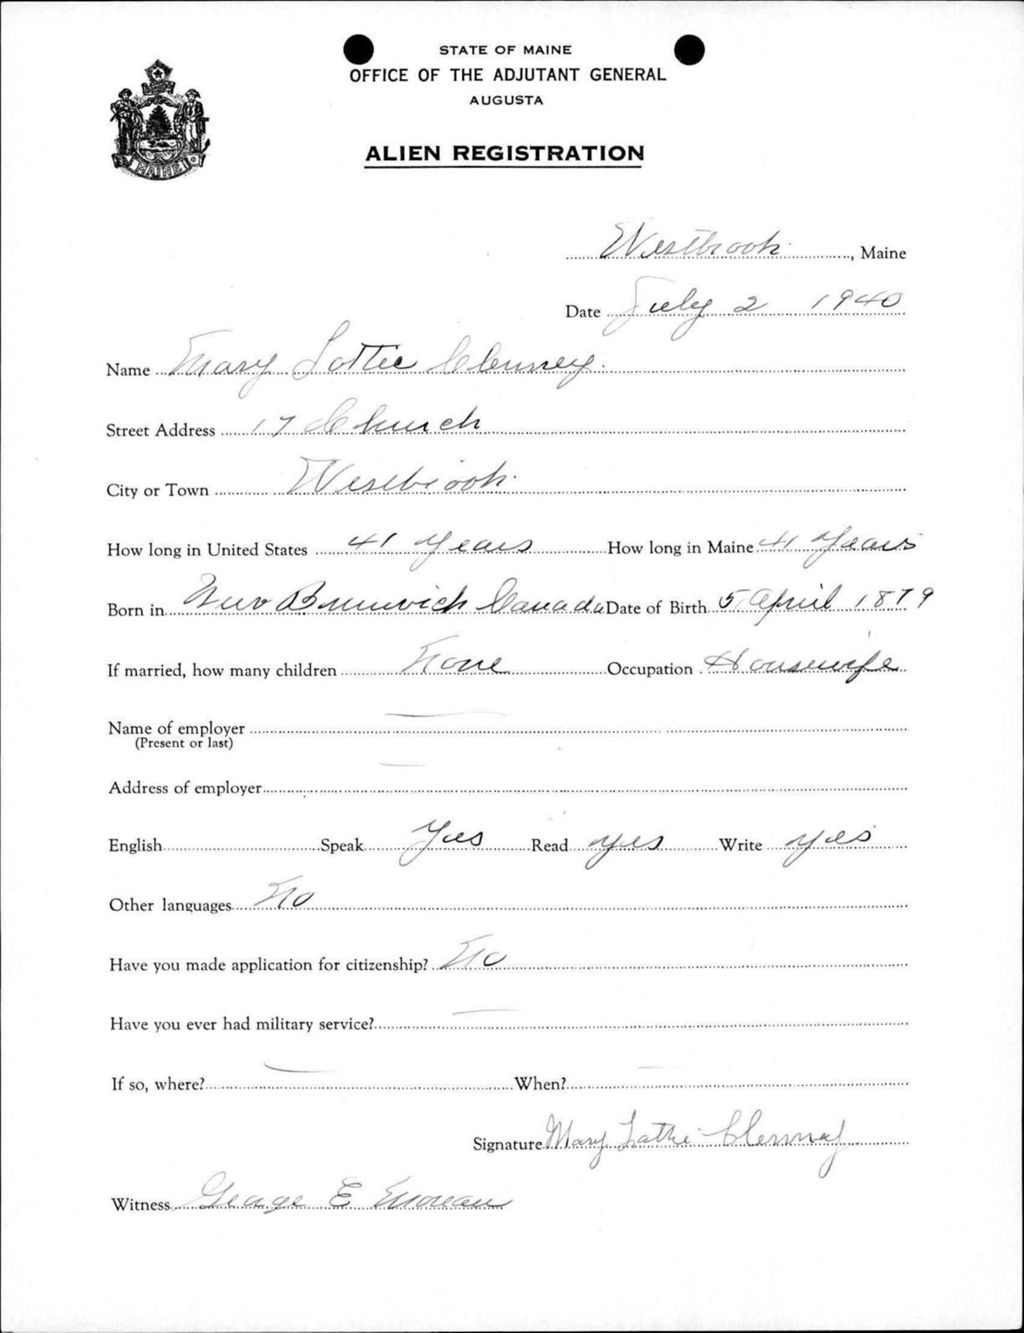 STATE OF MAINE
OFFICE OF THE ADJUTANT GENERAL
AUGUSTA
ALIEN REGISTRATION
MAINE
Westbrook, Maine
Date July 2 1940
Name Mary Lottie Clenney.
Street Address 17 Church
City or Town Westbrook.
How long in United States 41 Years How long in Maine 41 Years
Born in New Brunswick Canada Date of Birth 5 April 1879
If married, how many children None Occupation Housewife
Name of employer —
(Present or last)
Address of employer —
English Speak Yes Read yes Write yes
Other languages No
Have you made application for citizenship? No
Have you ever had military service? —
If so, where? — When? —
Signature Mary Lottie Clenney
Witness George E Moreau